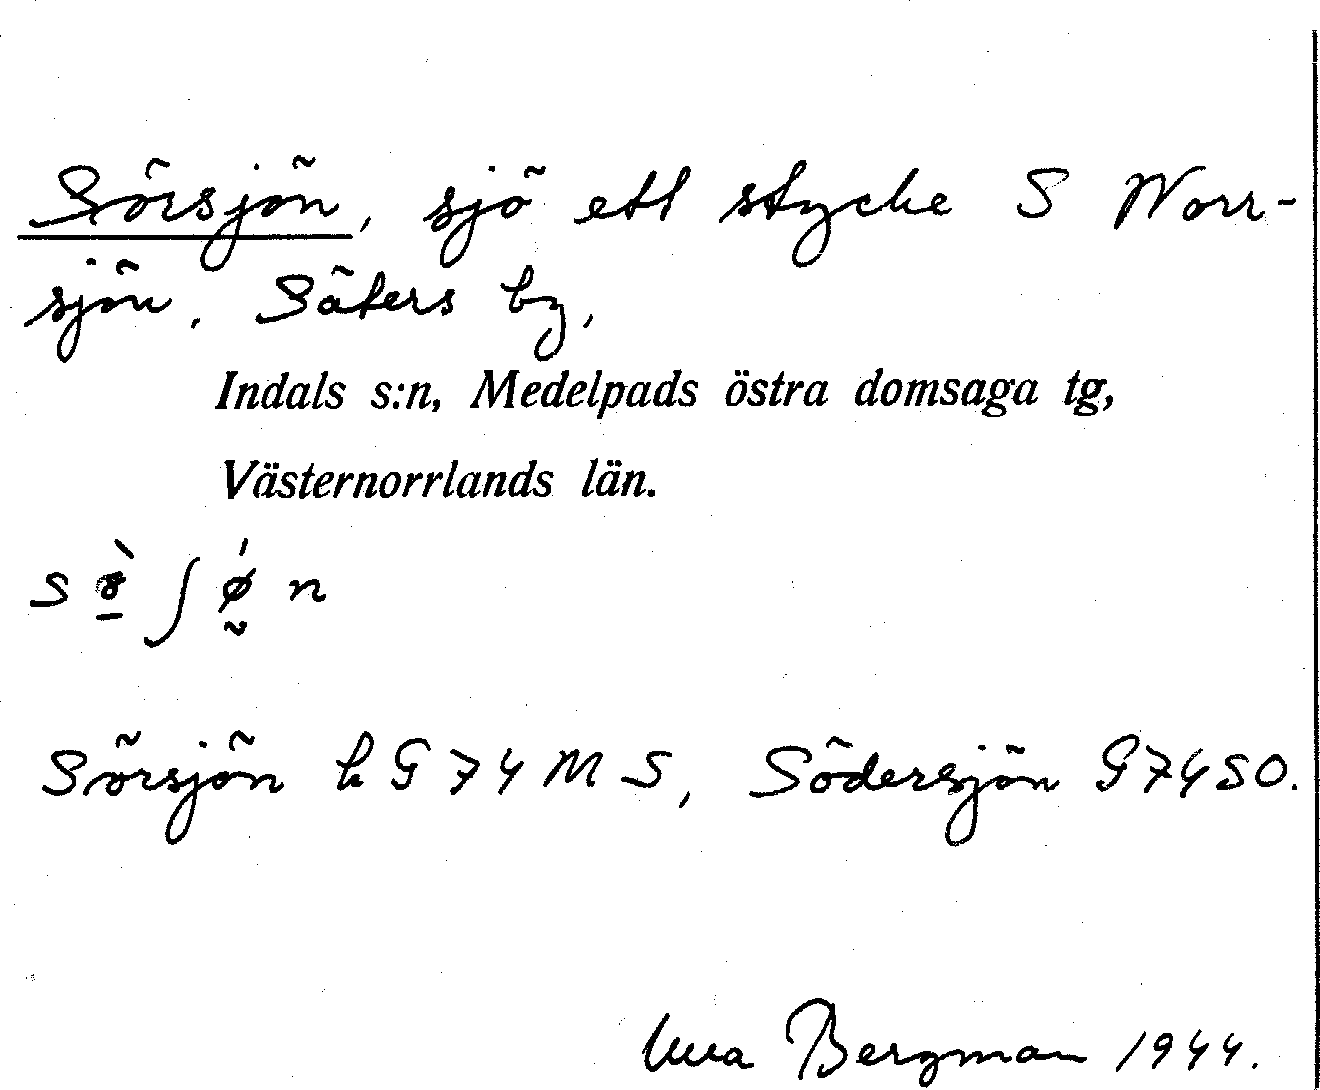 Sörsjön, sjö ett stycke S Norr-
sjön, Säters by,
Indals s:n, Medelpads östra domsaga tg,
Västernorrlands län.
Sörsjön k G74MS, Södersjön G74SO.
Bergman 1944.